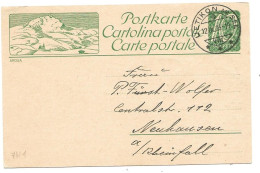 Postkarte
Cartolina postale
Carte postale
OETIKON
Frau
P. Fürst-Wolfer
Centralstr. 172
Neuhausen
a/Rheinfall